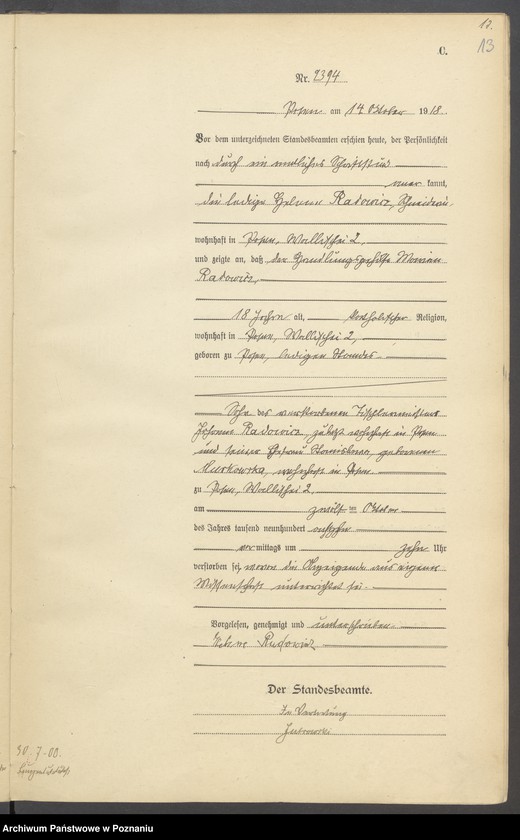 12.
13
C.
Nr. 2394
Posen am 14 Oktober 1918.
Vor dem unterzeichneten Standesbeamten erschien heute, der Persönlichkeit
nach durch ein amtliches Schriftstück
aner kannt,
die ledige Helene Radowicz, Schneiderin
wohnhaft in Posen, Wallischei 2,
und zeigte an, daß der Handlungsgehilfe Marian
Radowicz,
18 Jahre alt, katholischer Religion,
wohnhaft in Posen, Wallischei 2,
geboren zu Posen, ledigen Standes
Sohn des verstorbenen Tischlermeisters
Johann Radowicz, zuletzt wohnhaft in Posen
und seiner Ehefrau Stanislawa, geborenen
Murkowska, wohnhaft in Posen.
zu Posen, Wallischei 2,
am zwölften Oktober
des Jahres tausend neunhundert achtzehn
vor mittags um zehn Uhr
verstorben sei, wovon die Anzeigende aus eigener
Wissenschaft unterrichtet sei.
Vorgelesen, genehmigt und unterschrieben
Helene Radowicz
Der Standesbeamte.
In Vertretung
30. 7-00.
Archiwum Państwowe w Poznaniu